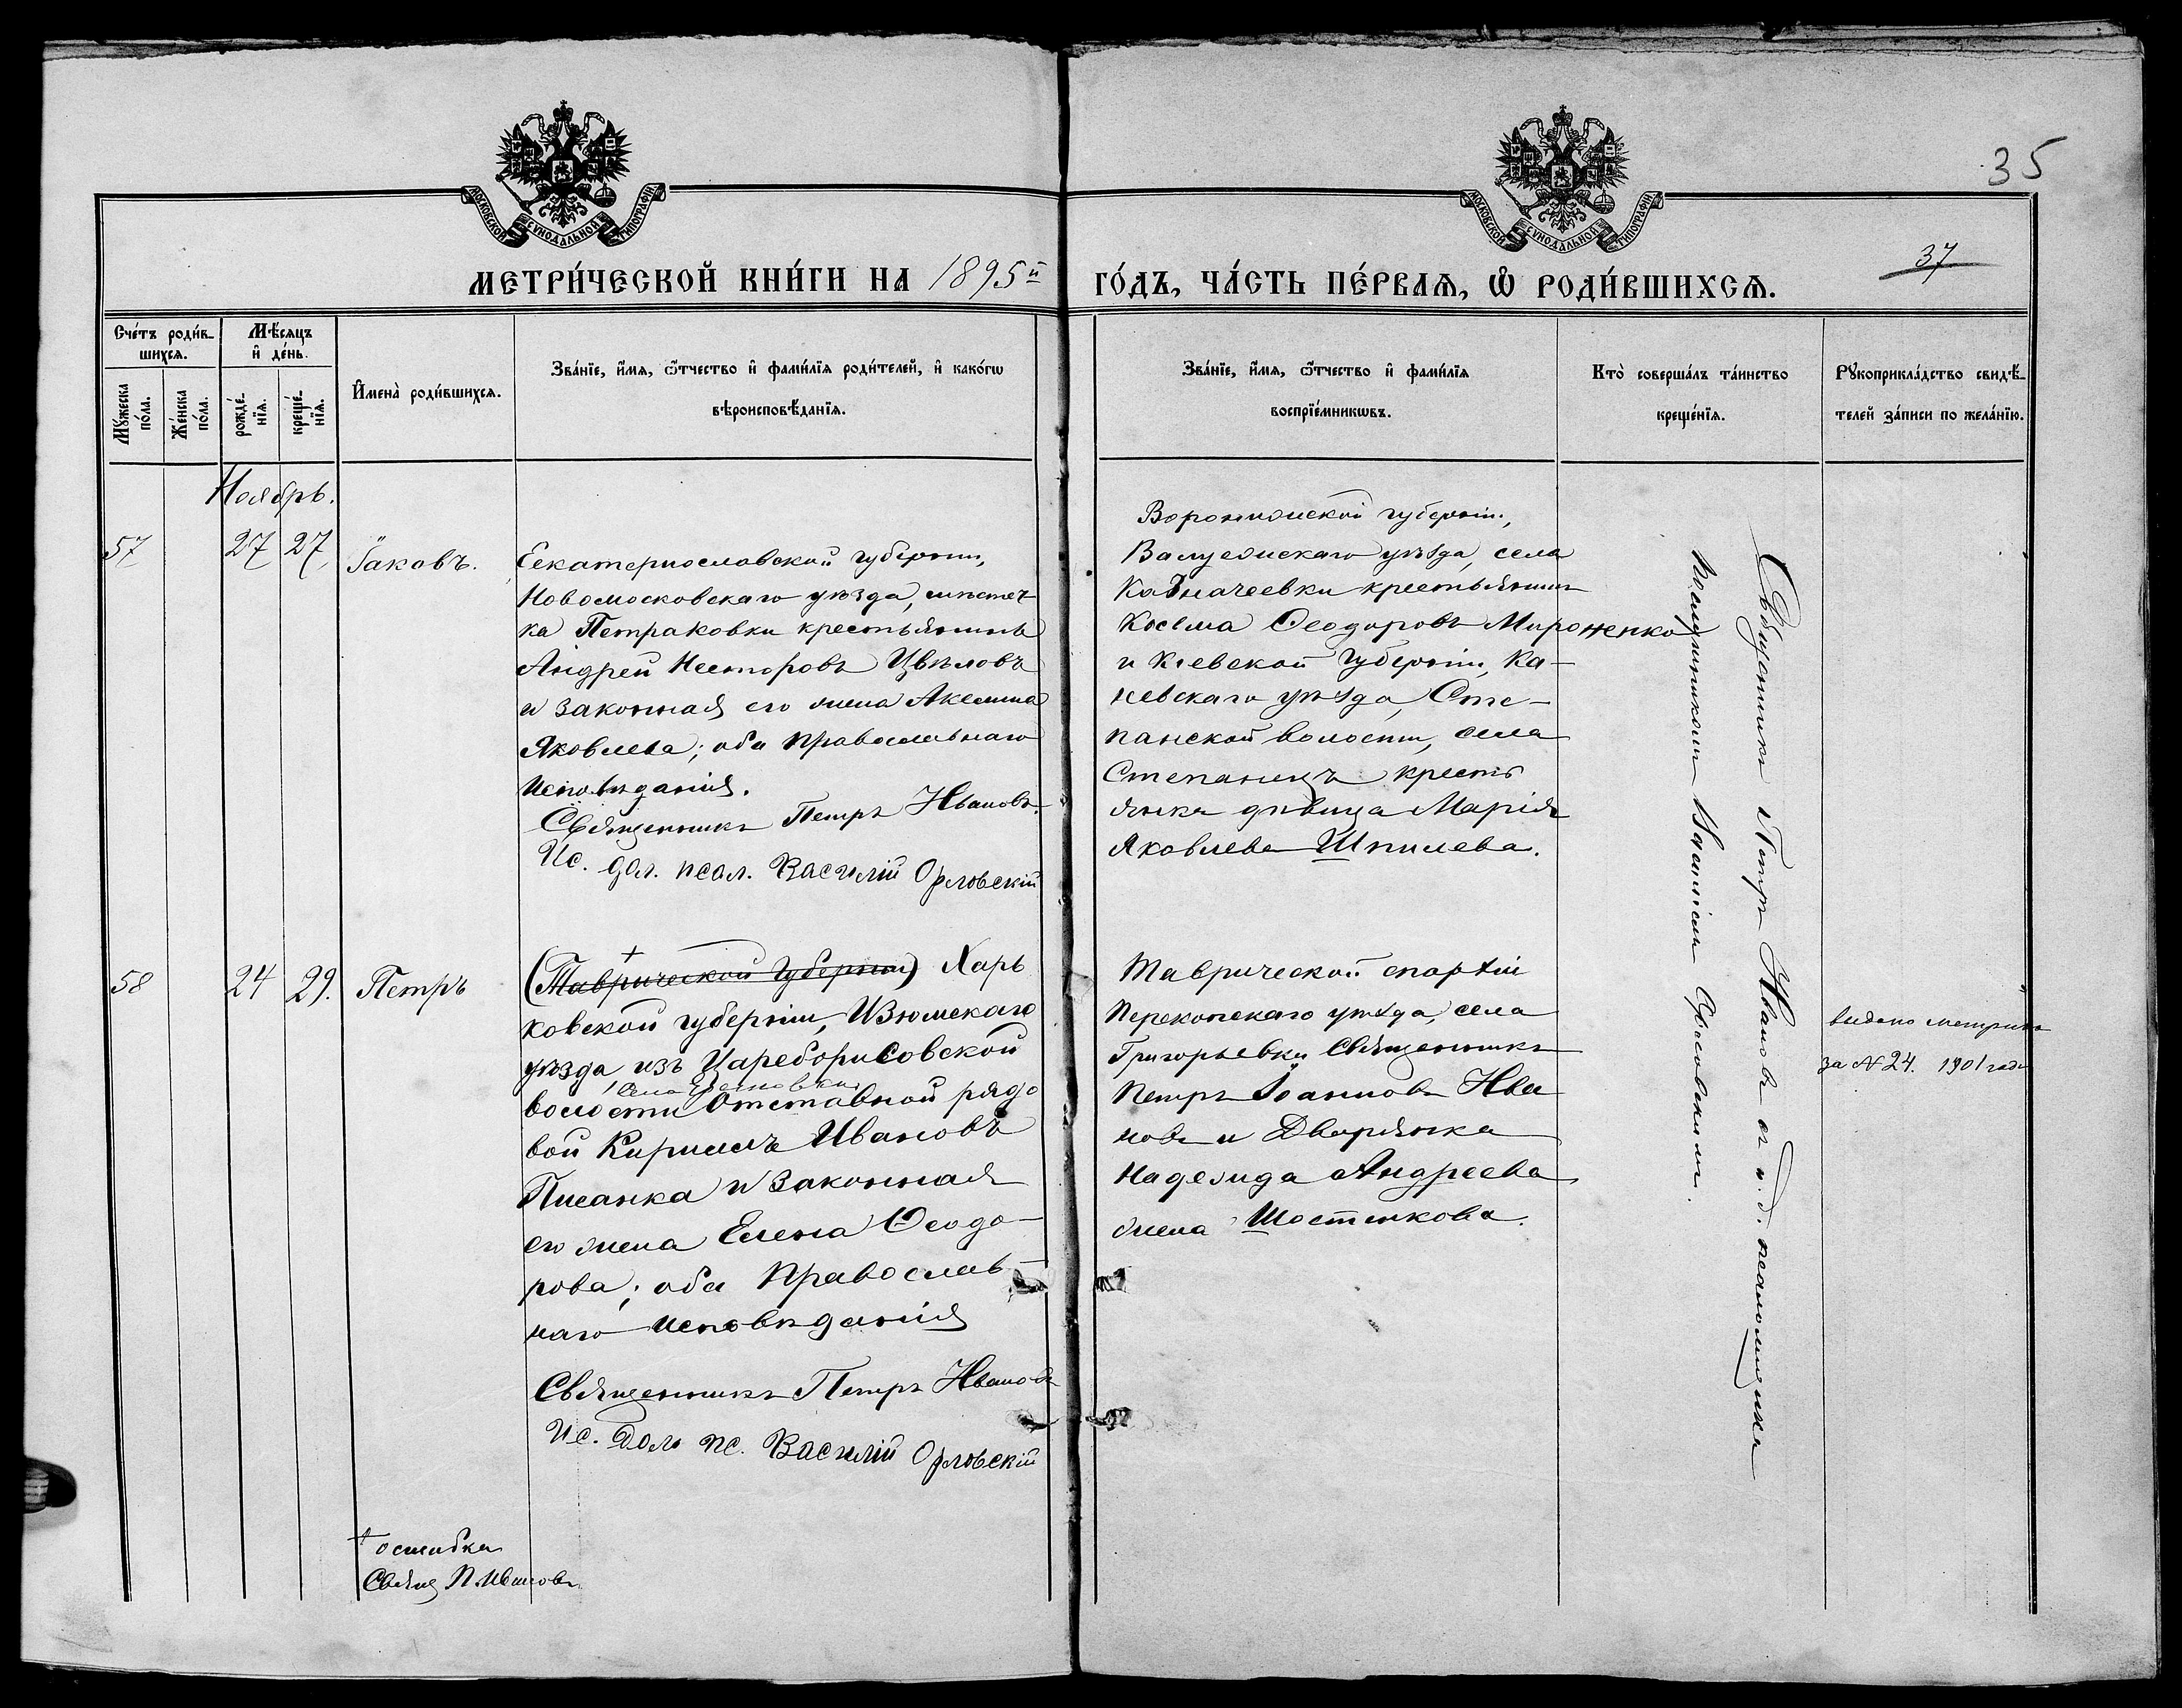 35
37
МОСКОВСКОЙ СѴНОДАЛЬНОЙ ТИПОГРАФІИ
МОСКОВСКОЙ СѴНОДАЛЬНОЙ ТИПОГРАФІИ
МЕТРИ́ЧЕСКОЙ КНИ́ГИ НА 1895й ГО́ДЪ, ЧА́СТЬ ПЕ́РВАѦ, Ѡ҆ РОДИ́ВШИХСѦ.
Сче́тъ роди́в-
шихсѧ.
Мꙋ́жеска по́ла.
Же́нска по́ла.
Мѣ́сѧцъ
и҆ де́нь.
рожде́-
нїѧ.
креще́-
нїѧ.
И҆мена̀ роди́вшихсѧ.
Зва́нїе, и҆́мѧ, ѻ҆́тчество и҆ фами́лїѧ роди́телей, и҆ како́гѡ
вѣроисповѣ́данїѧ.
Зва́нїе, и҆́мѧ, ѻ҆́тчество и҆ фами́лїѧ
воспрїе́мникѡвъ.
Кто̀ соверша́лъ та́инство
креще́нїѧ.
Рꙋкоприкла́дство свидѣ́-
телей за́писи по жела́нїю.
Ноябрь.
57 27 27 Іаковъ.
Екатеринославской губерніи,
Новомосковскаго уѣзда, мѣстеч-
ка Петраковки крестьянинъ
Андрей Несторовъ Цвѣловъ
и законная его жена Аксинія
Яковлева; оба православнаго
исповѣданія.
Священникъ Петръ Ивановъ
Ис. дол. псал. Василій Орловскій
Воронежской губерніи,
Валуйскаго уѣзда, села
Казначеевки крестьянинъ
Косьма Ѳеодоровъ Мироненко
и Кіевской губерніи, Ка-
невскаго уѣзда, Сте-
панской волости, села
Степанецъ кресть
янка дѣвица Марія
Яковлева Шпилева.
Священникъ Петръ Ивановъ съ и. д. псаломщика
Василіемъ Орловскимъ.
58 24 29. Петръ
(Таврической Губерніи) Харь
ковской губерніи, Изюмскаго
уѣзда изъ Цареборисовской
волости Отставной рядо
вой Кириллъ Ивановъ
Писанка и законная
его жена Елена Ѳеодо-
рова; оба Православ-
наго исповѣданія
Священникъ Петръ Ивановъ
Ис. Дол пс. Василій Орловскій
Таврической епархіи
Перекопскаго уѣзда, села
Григорьевки Священникъ
Петръ Іоанновъ Ива
новъ и Дворянка
Надежда Андреева
жена Шостенкова.
выдана метрика
за № 24. 1901 года
+ ошибка
Свящ П. Ивановъ